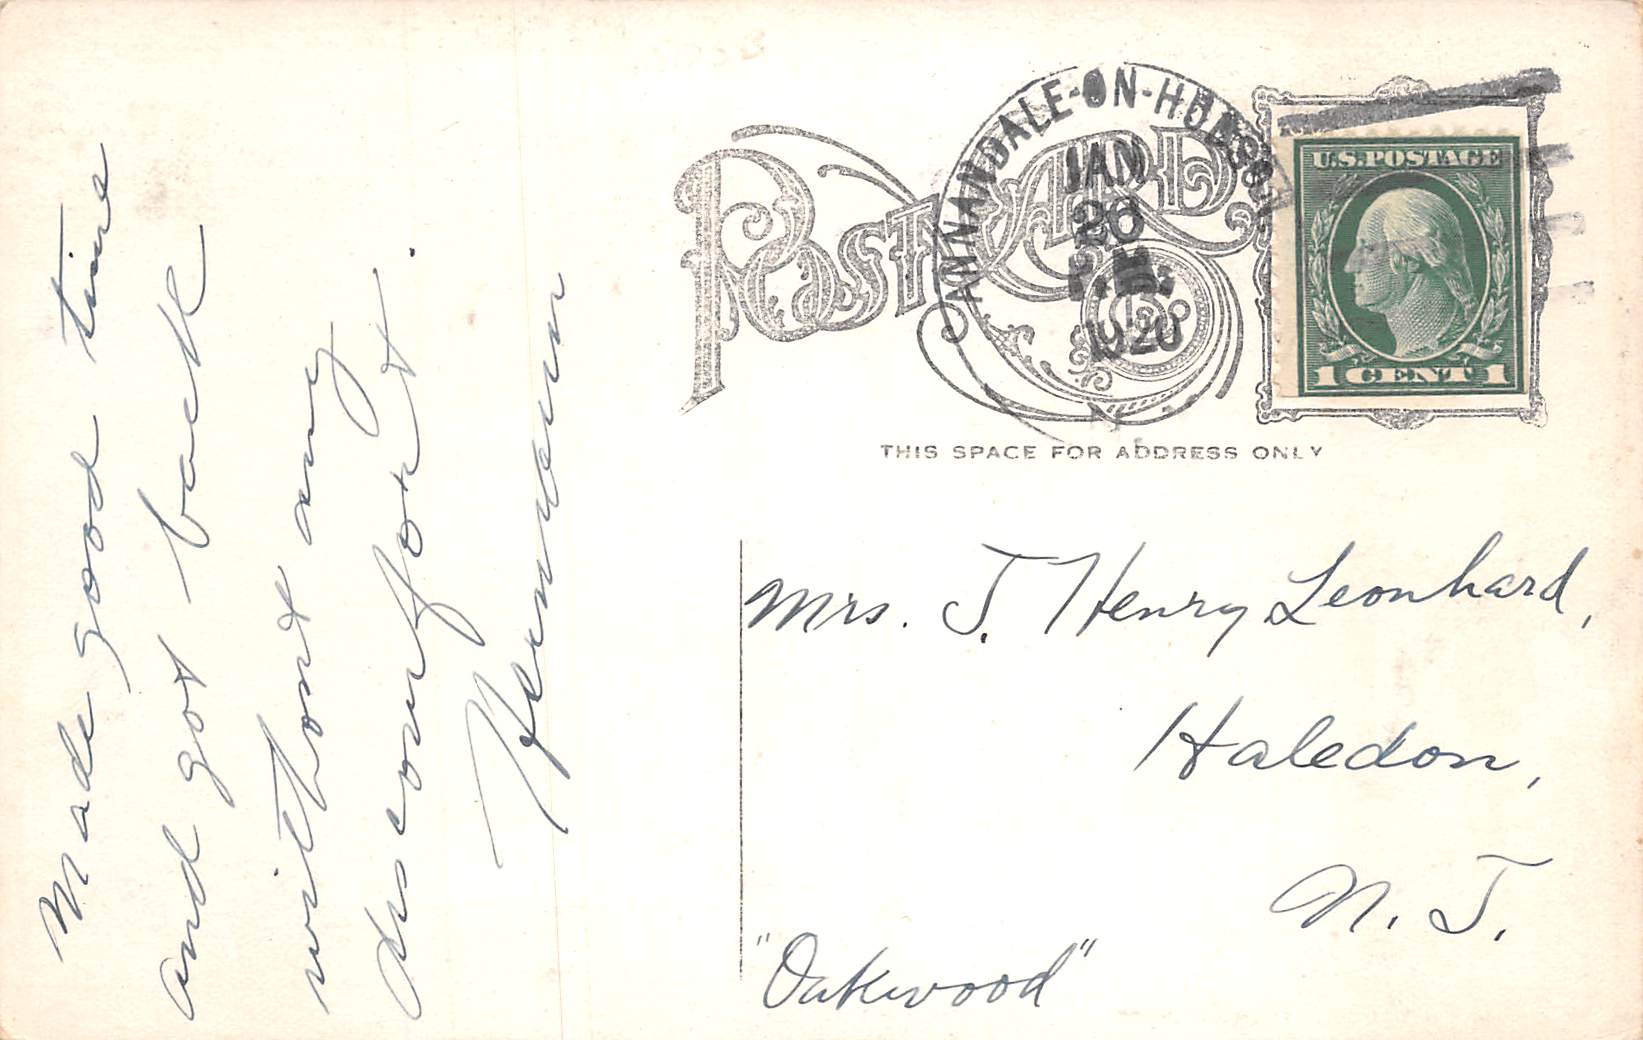 Made good time
and got back
without any
discomfort.
Herman
POST CARD
ANNANDALE-ON-HUDSON
JAN
26
P.M.
1920
U.S.POSTAGE
1 CENT 1
THIS SPACE FOR ADDRESS ONLY
Mrs. J. Henry Leonhard,
Haledon,
N. J.
"Oakwood"